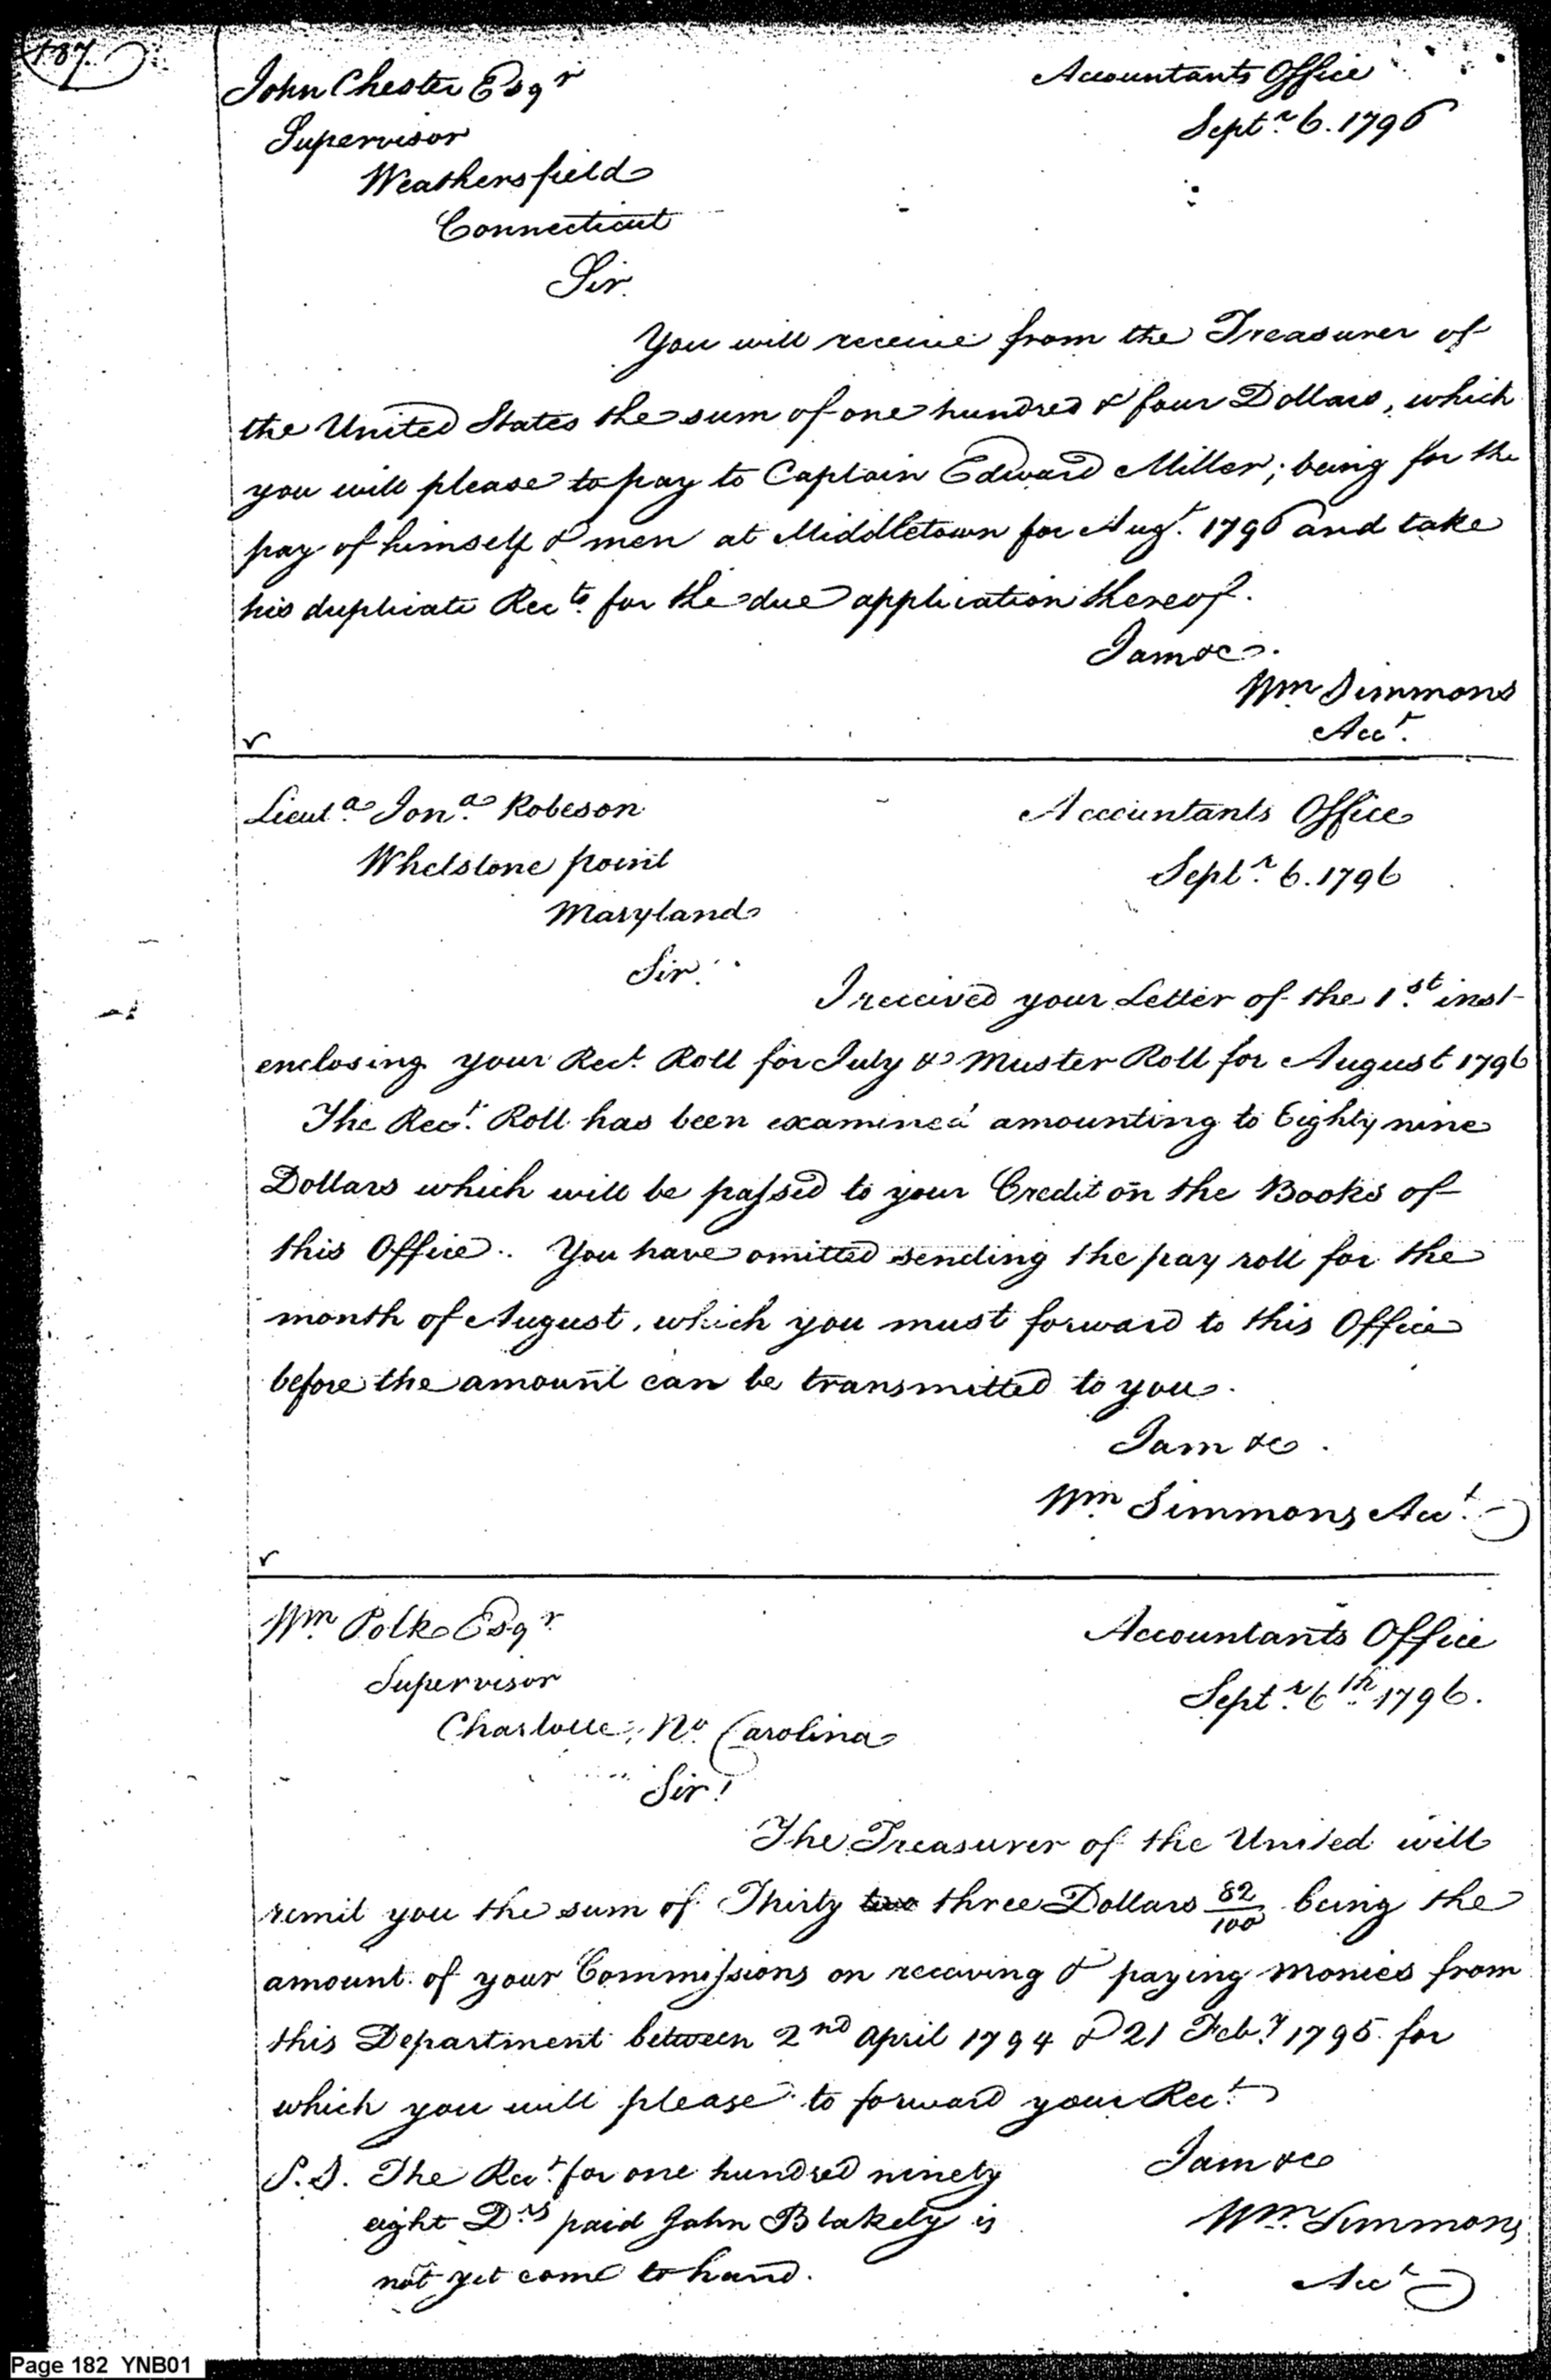 187.
John Chester Esqr
Accountants Office
Supervisor
Septr 6. 1796
Weathersfield
Connecticut
Sir.
You will receive from the Treasurer of
the United States the sum of one hundred & four Dollars, which
you will please to pay to Captain Edward Miller; being for the
pay of himself & men at Middletown for Augt. 1796 and take
his duplicate Rects. for the due application thereof.
I am &c.
Wm Simmons
Acct.
Lieuta. Jona. Robeson
Accountants Office
Whetstone point
Septr. 6. 1796
Maryland
Sir.
I received your Letter of the 1st. inst
enclosing your Rect. Roll for July & Muster Roll for August 1796
The Rect. Roll has been examined amounting to Eighty nine
Dollars which will be passed to your Credit on the Books of
this Office. You have omitted sending the pay roll for the
month of August, which you must forward to this Office
before the amount can be transmitted to you.
I am &c.
Wm. Simmons Acct.
Wm. Polk Esqr.
Accountants Office
Supervisor
Septr. 6th. 1796.
Charlotte, No. Carolina
Sir!
The Treasurer of the United will
remit you the sum of Thirty two three Dollars 82/100 being the
amount of your Commissions on receiving & paying monies from
this Department between 2nd April 1794 & 21 Feby. 1795 for
which you will please to forward your Rect.
I am &c
P.S. The Rect. for one hundred ninety
eight Drs. paid John Blakely is
Wm. Simmons
not yet come to hand.
Acct
Page 182 YNB01